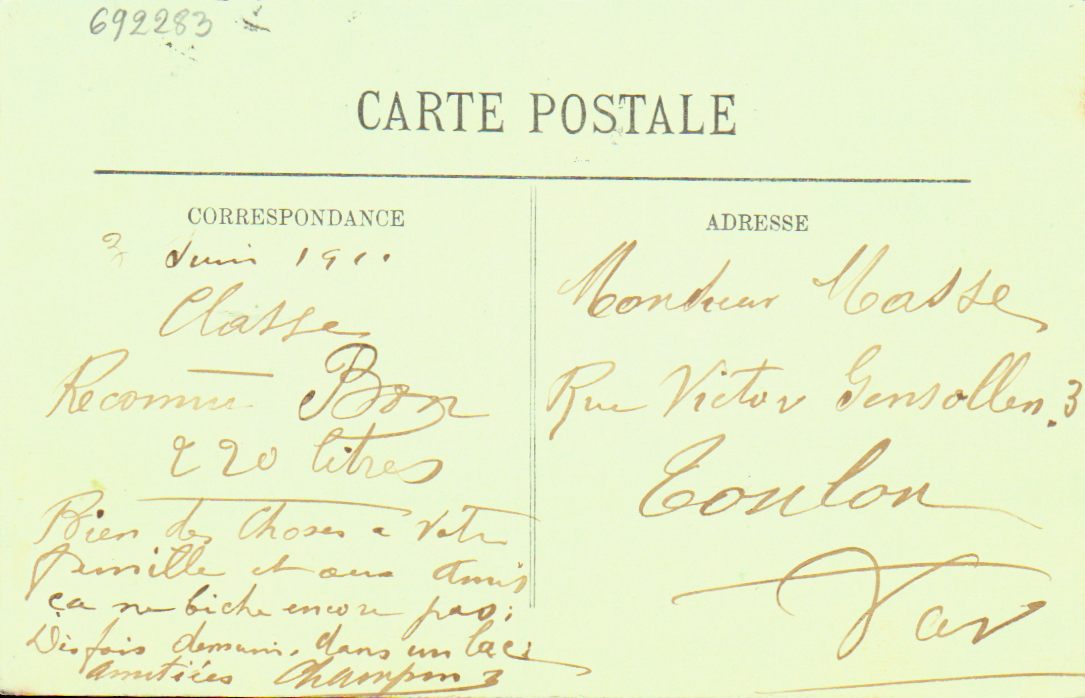 692283
CARTE POSTALE
CORRESPONDANCE
Juin 1911
Classe
Reconnu Bon
220 litres
Bien des Choses a Votre
famille et aux amis
ça ne biche encore pas;
Dis fois demain, dans un lac;
amitiées
ADRESSE
Monsieur Masse
Rue Victor Gensollen. 3
Toulon
Var